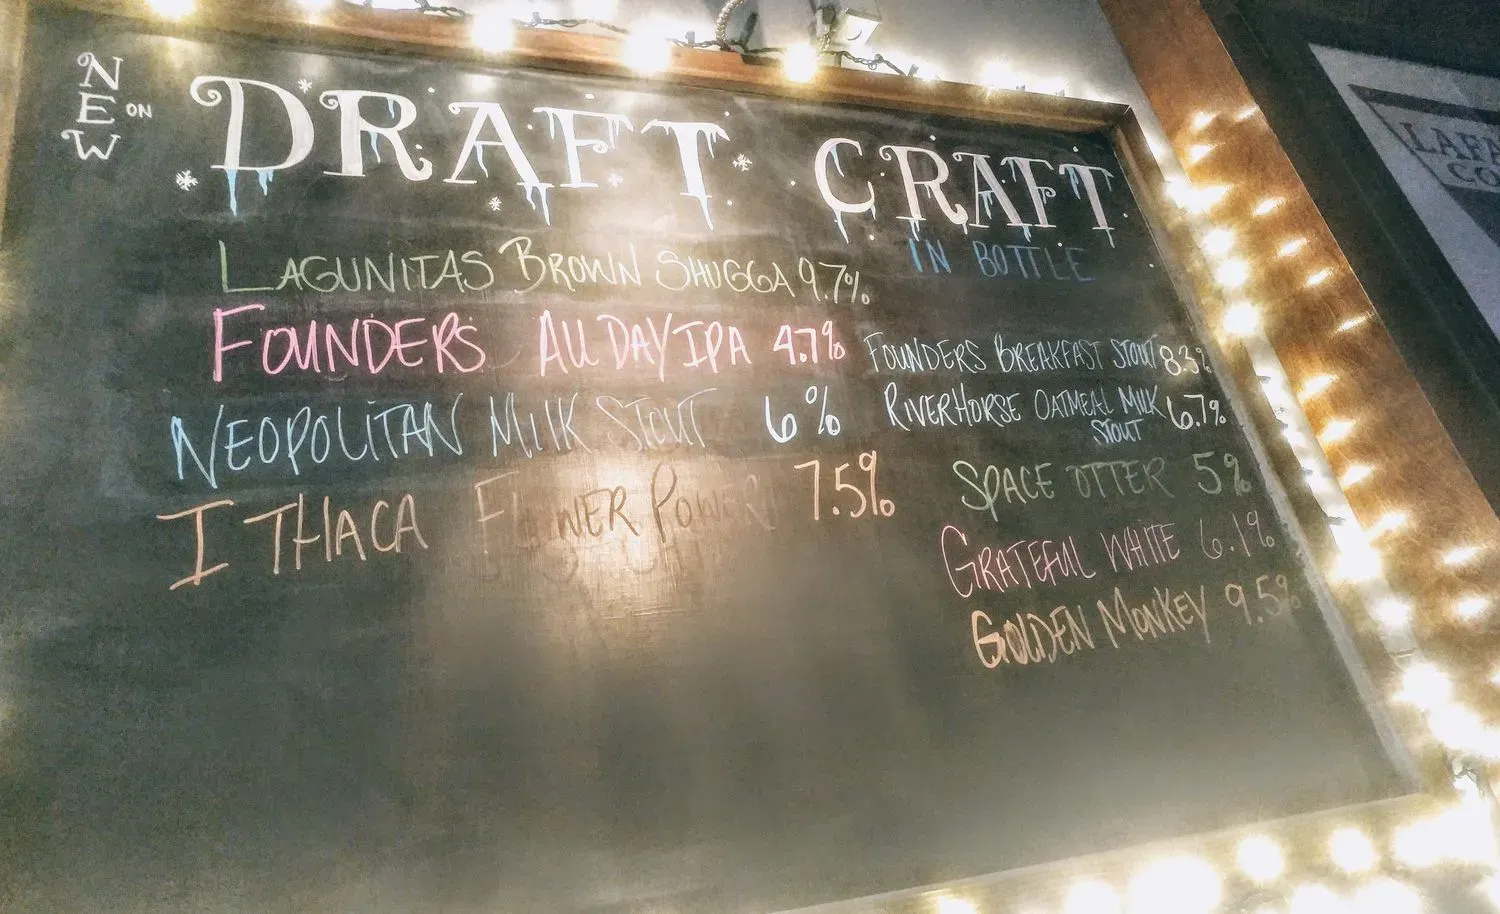 NEW ON DRAFT
LAGUNITAS BROWN SHUGGA 9.7%
FOUNDERS ALL DAY IPA 4.7%
NEOPOLITAN MILK STOUT 6%
ITHACA FLOWER POWER 7.5%
CRAFT
IN BOTTLE
FOUNDERS BREAKFAST STOUT 8.3%
RIVERHORSE OATMEAL MILK 6.7%
STOUT
SPACE OTTER 5%
GRATEFUL WHITE 6.1%
GOLDEN MONKEY 9.5%